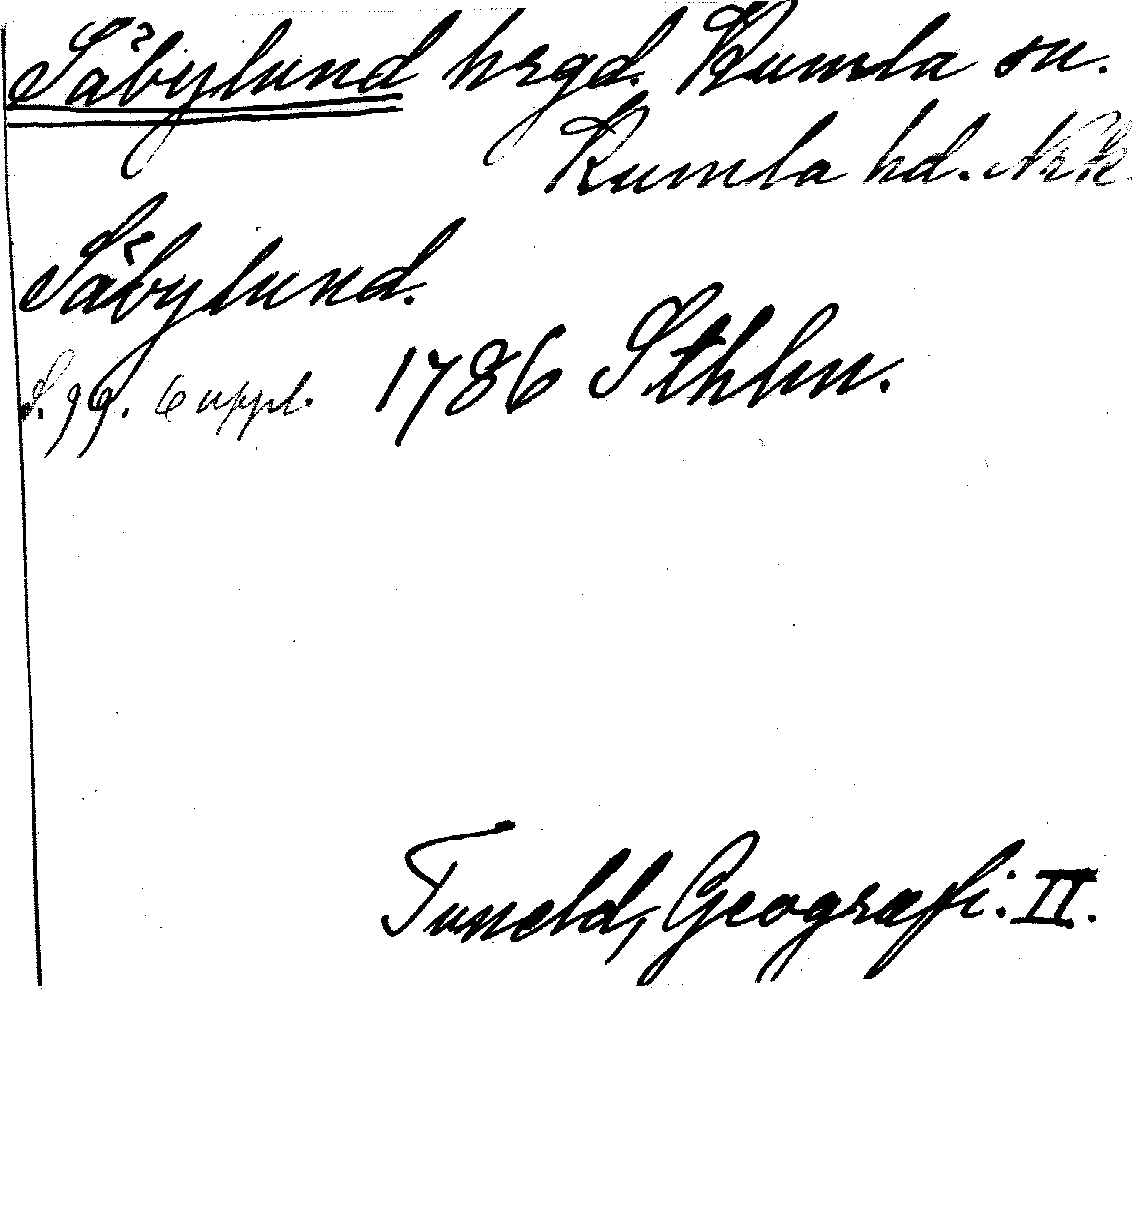 Såbylund hrgd. Kumla sn.
Kumla hd. Nrk.
Såbylund.
S. 99. 6 uppl. 1786 Sthlm.
Tuneld, Geografi. II.